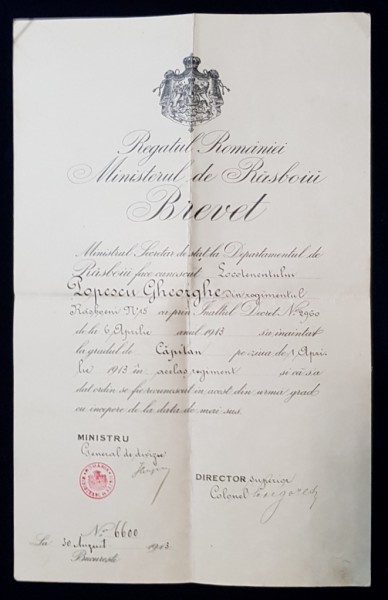 Regatul României
Ministerul de Răsboiŭ
Brevet
Ministrul Secretar de stat la Departamentul de
Răsboiŭ face cunoscut Locotenentului
Popescu Gheorghe din regimentul
Războeni No 15 că prin Înaltul Decret No 2960
de la 6 Aprilie anul 1913 s'a înaintat
la gradul de Căpitan pe ziua de 1 Apri-
lie 1913 în acelaș regiment și că s'a
dat orden să fie recunoscut în acest din urmă grad
cu începere de la data de mai sus.
MINISTRU
General de divizie
DIRECTOR superior
Colonel
No 6600
La 30 August 1913
București